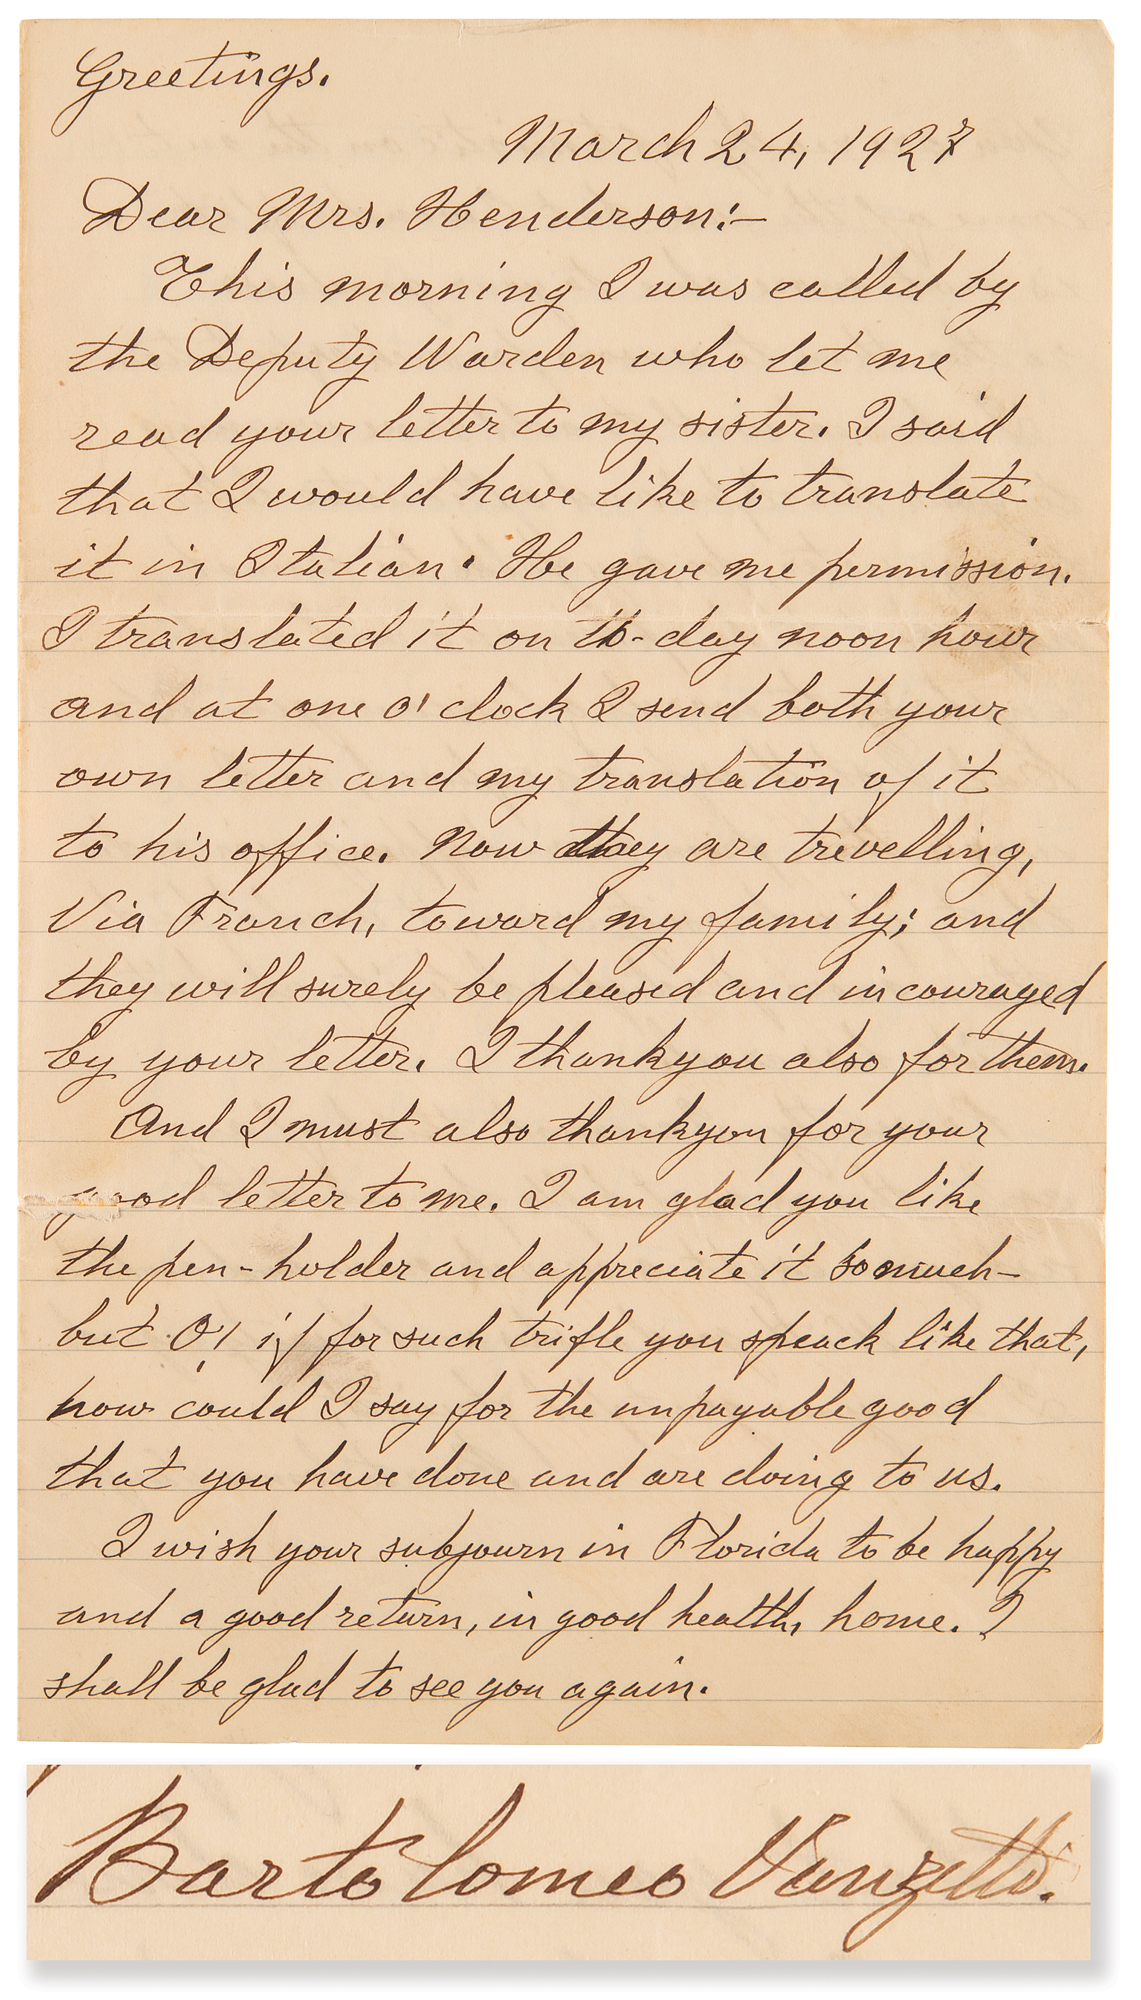 Greetings.
March 24, 1927
Dear Mrs. Henderson:—
This morning I was called by
the Deputy Warden who let me
read your letter to my sister. I said
that I would have like to translate
it in Italian. He gave me permission.
I translated it on to-day noon hour
and at one o'clock I send both your
own letter and my translation of it
to his office. Now they are trevelling,
Via Franch, toward my family; and
they will surely be pleased and incouraged
by your letter. I thank you also for them.
And I must also thank you for your
good letter to me. I am glad you like
the pen-holder and appreciate it so much—
but O! if for such trifle you speack like that,
how could I say for the unpayable good
that you have done and are doing to us.
I wish your subjourn in Florida to be happy
and a good return, in good health, home. I
shall be glad to see you again.
Bartolomeo Vanzetti.